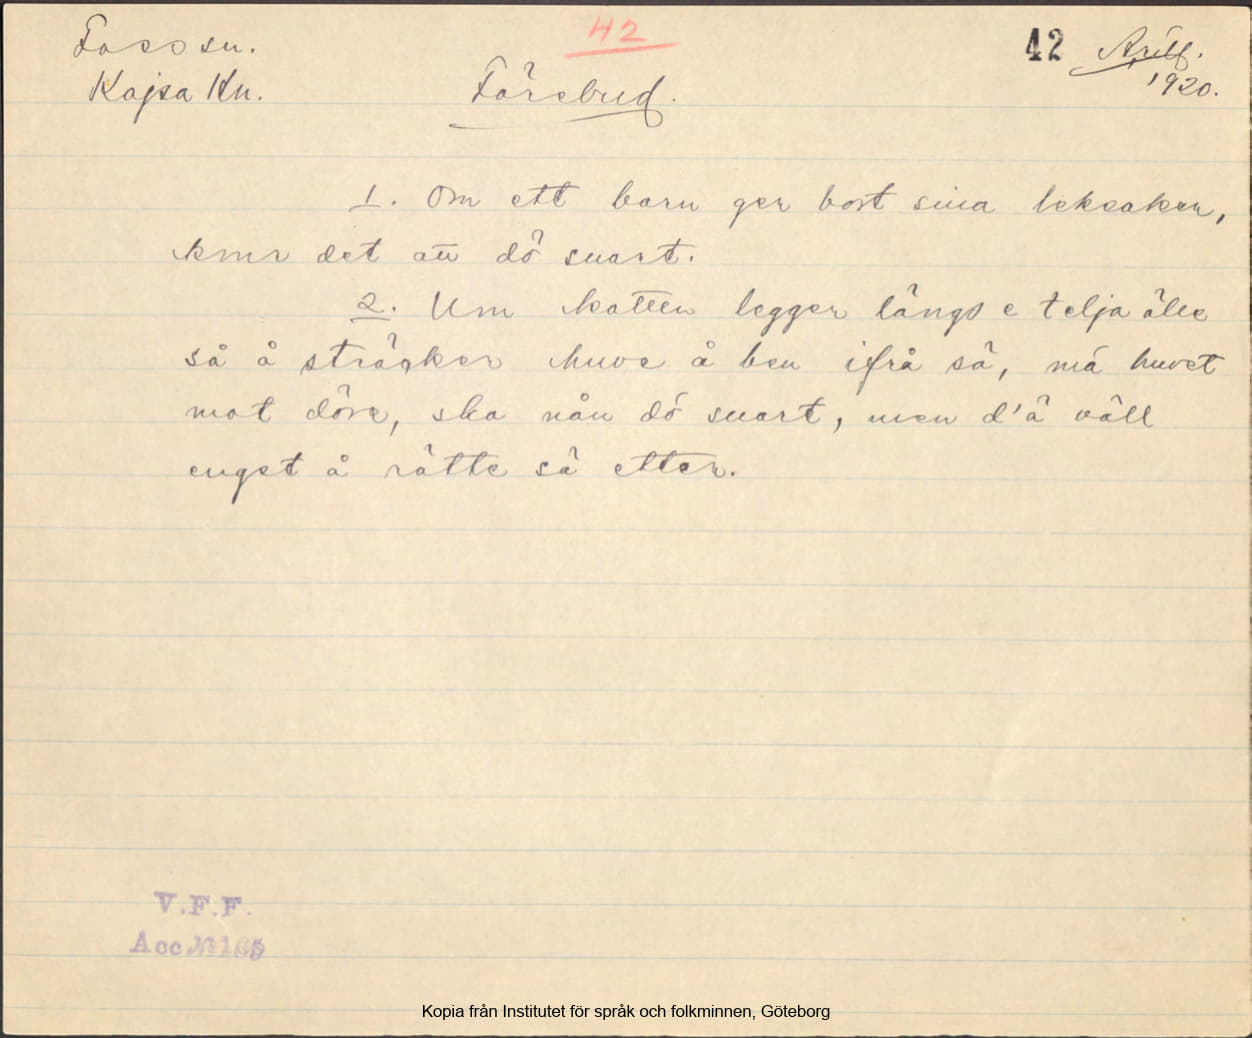 42
Foss sn. 42 Arill.
Kajsa Kn. Förebud. 1920.
1. Om ett barn ger bort sina leksaker,
kmr det att dö snart.
2. Um katten legger längs e telja äller
så å sträcker huve å ben ifrå sä, mä huvet
mot döra, ska nån dö snart, men d'ä väll
enget å rätte sä etter.
V.F.F.
Acc №
Kopia från Institutet för språk och folkminnen, Göteborg